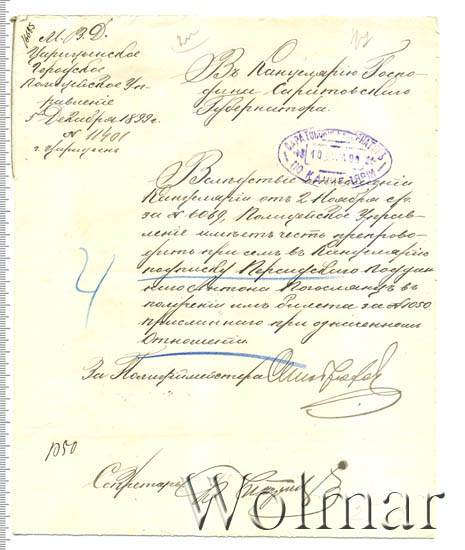 М. В. Д.
Царицынское
Городское
Полицейское Уп-
равление
5 Декабря 1899 г.
№ 11401
г. Царицынъ
Въ Канцелярію Госпо-
дина Саратовскаго
Губернатора.
Вслѣдствіе
Канцеляріи отъ 2 Ноября с/г.
за № 6069, Полицейское Управ-
леніе имѣетъ честь препрово-
дить при семъ въ Канцелярію
подписку Персидскаго поддан
наго Антона въ
полученіи имъ билета за № 1050
присланнаго при
отношеніи
За Полиціймейстера
1050
Секретарь
Wolmar